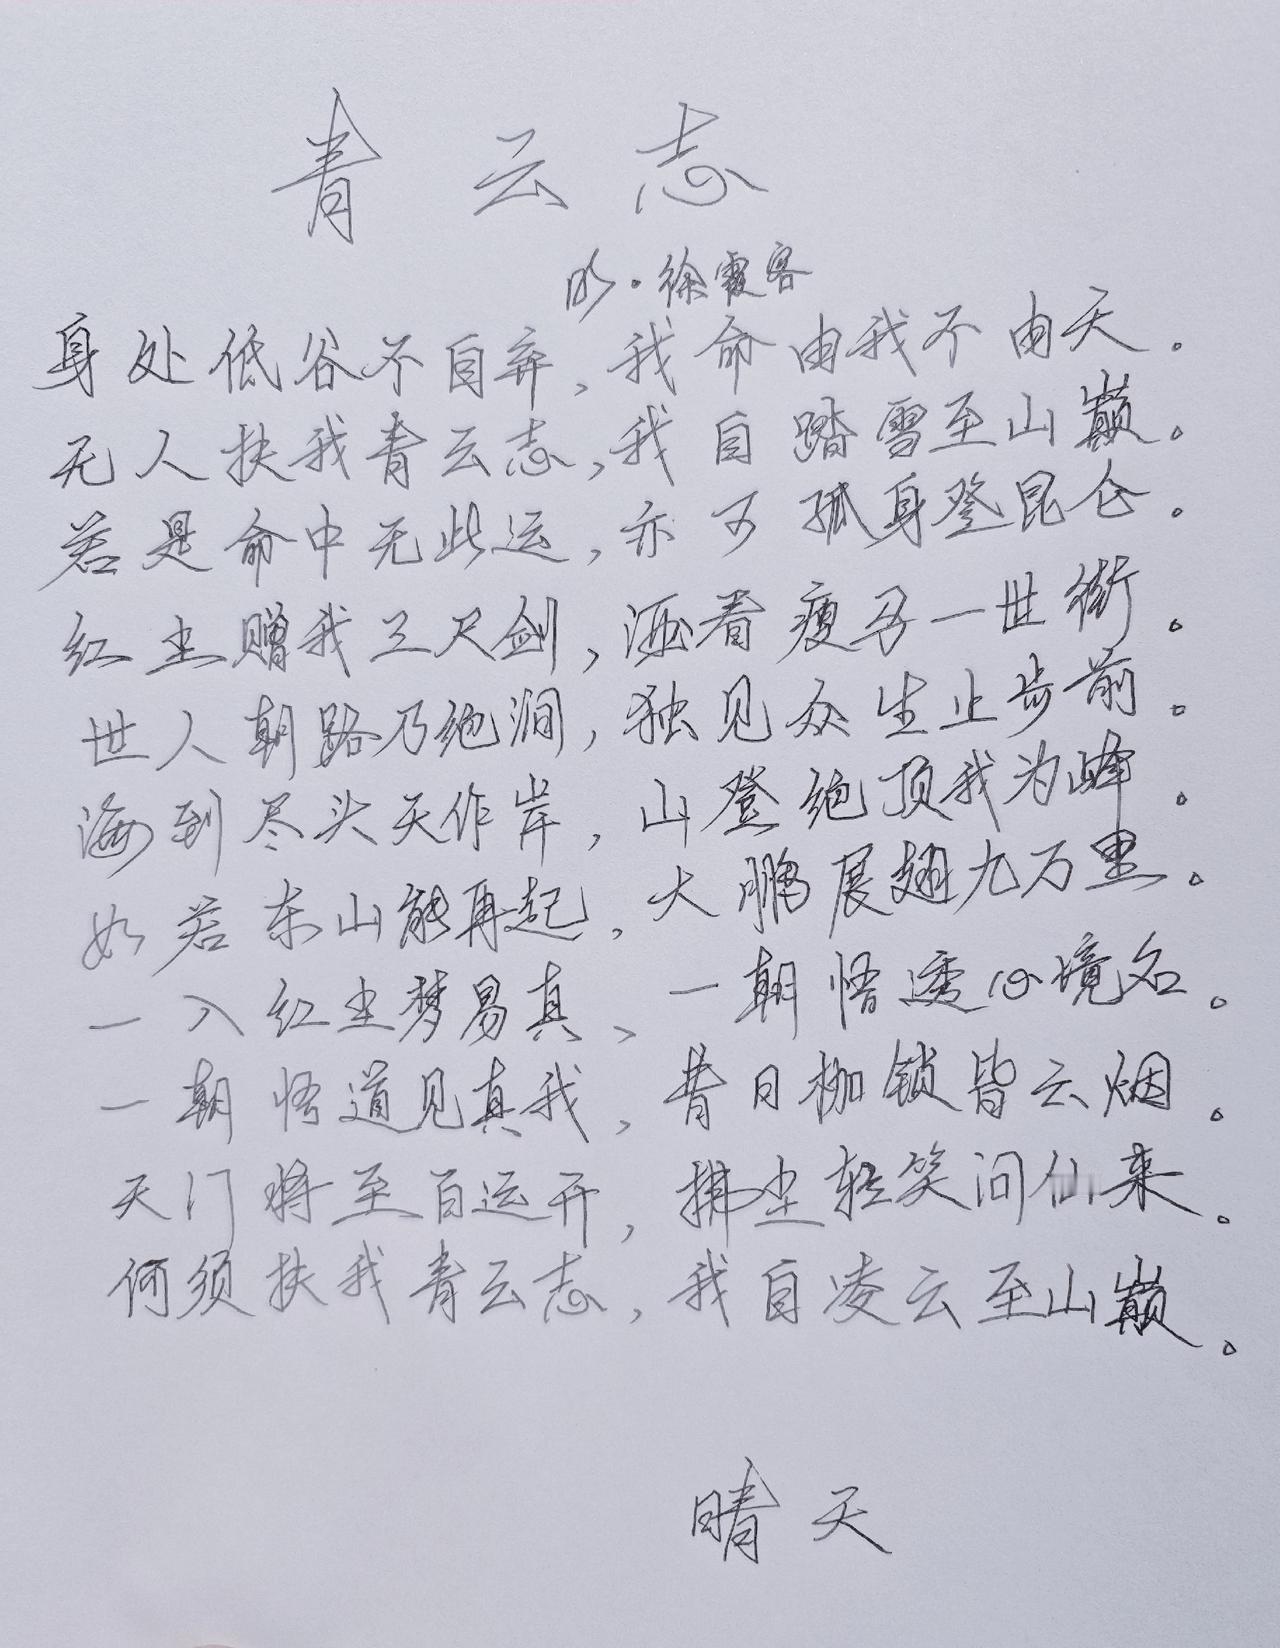 青云志
明·徐霞客
身处低谷不自弃,我命由我不由天。
无人扶我青云志,我自踏雪至山巅。
若是命中无此运,亦可孤身登昆仑。
红尘赠我三尺剑,酒看瘦马一世街。
世人朝路乃绝涧,独见众生止步前。
海到尽头天作岸,山登绝顶我为峰。
如若东山能再起,大鹏展翅九万里。
一入红尘梦易真、一朝悟透心境名。
一朝悟道见真我,昔日枷锁皆云烟。
天门将至百运开,拂尘轻笑问仙来。
何须扶我青云志,我自凌云至山巅。
晴天